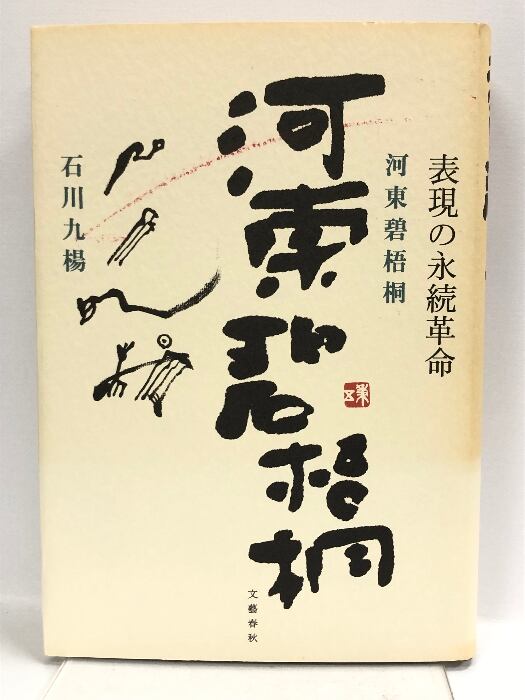 表現の永続革命
河東碧梧桐
河東碧梧桐
石川九楊
文藝春秋